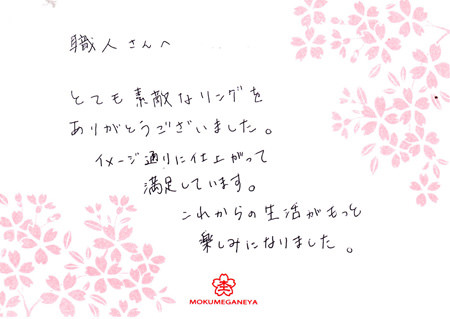 職人さんへ
とても素敵なリングを
ありがとうございました。
イメージ通りに仕上がって
満足しています。
これからの生活がもっと
楽しみになりました。
MOKUMEGANEYA